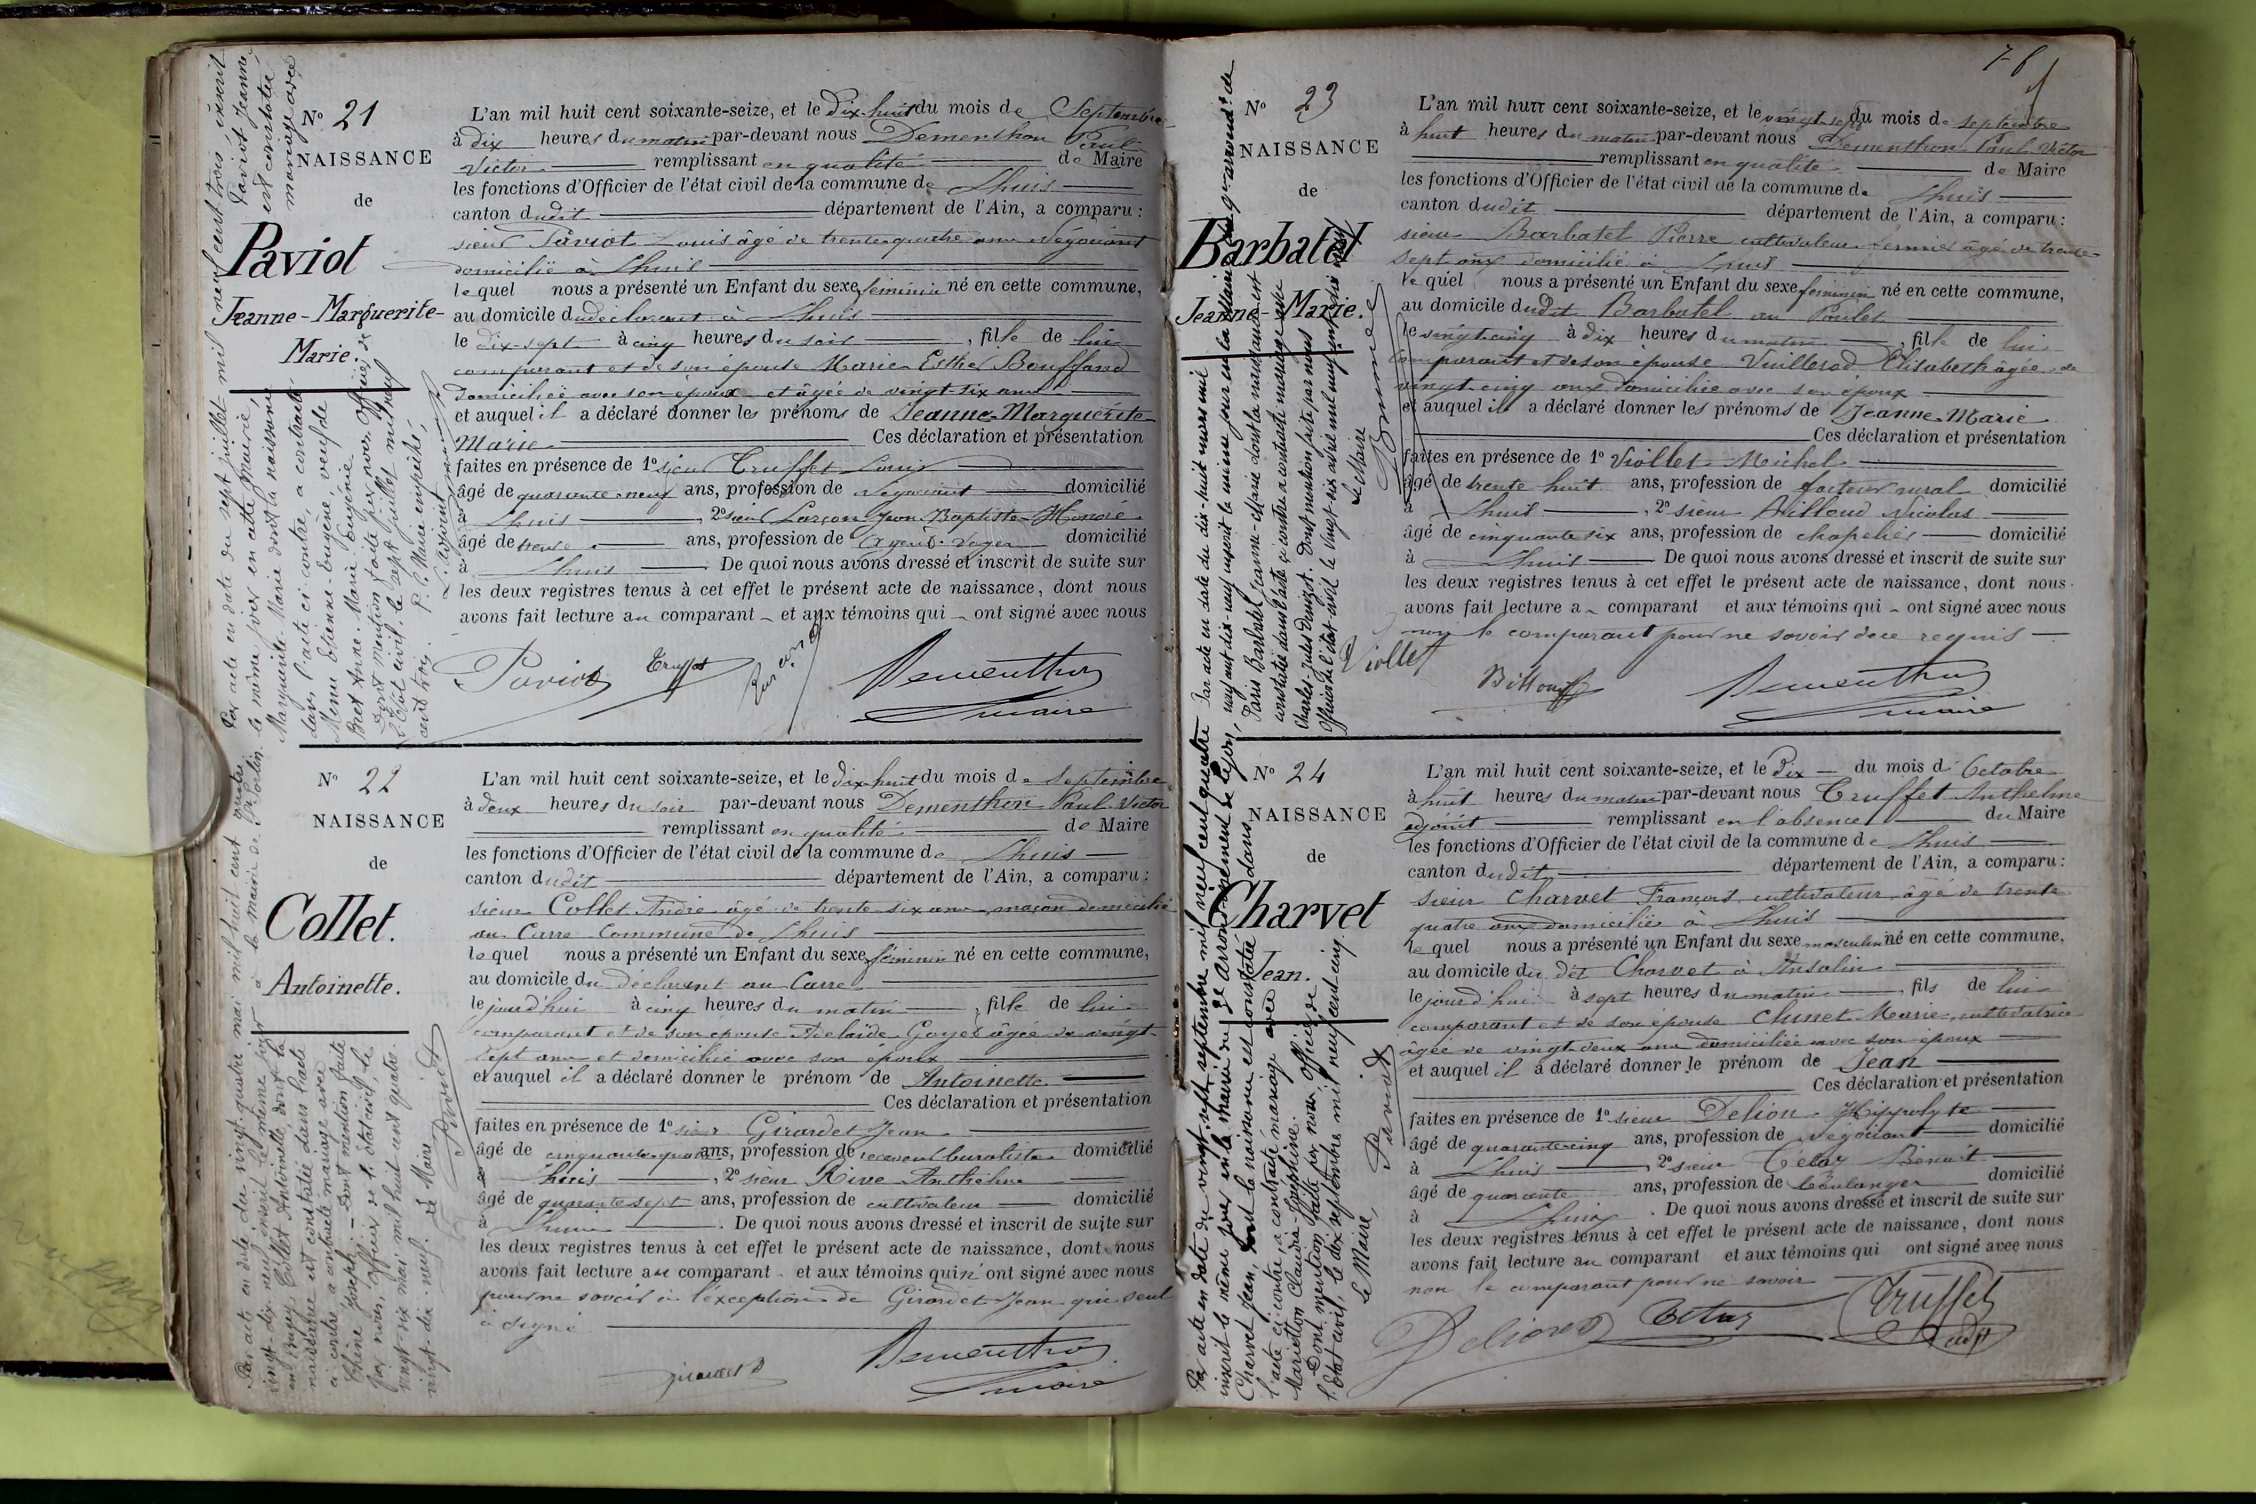 N° 21
NAISSANCE
de
Paviot
Jeanne-Marguerite-
Marie.
L'an mil huit cent soixante-seize, et le Dix-huit du mois de Septembre
à dix heures du matin par-devant nous Dementhon Paul
Victor remplissant en qualité de Maire
les fonctions d'Officier de l'état civil de la commune de Lhuis
canton dudit département de l'Ain, a comparu :
sieur Paviot Louis âgé de trente quatre ans Négociant
domicilié à Lhuis
lequel nous a présenté un Enfant du sexe féminin né en cette commune,
au domicile du declarant à Lhuis
le dix-sept à cinq heures du soir , fille de lui
comparant et de son épouse Marie Esther Bouffand
domiciliée avec son époux et âgée de vingt-six ans
et auquel il a déclaré donner les prénoms de Jeanne-Marguerite
Marie Ces déclaration et présentation
faites en présence de 1° sieur Truffet Louis
âgé de quarante-neuf ans, profession de Négociant domicilié
à Lhuis , 2° sieur Larçon Jean-Baptiste Honoré
âgé de trente ans, profession de Agent-Voyer domicilié
à Lhuis . De quoi nous avons dressé et inscrit de suite sur
les deux registres tenus à cet effet le présent acte de naissance, dont nous
avons fait lecture au comparant et aux témoins qui ont signé avec nous
Paviot Truffet Dementhon
maire
Par acte en date du sept juillet mil neuf cent trois inscrit
le même jour en cette mairie, Paviot Jeanne
Marguerite-Marie dont la naissance est constatée
dans l'acte ci-contre, a contracté mariage avec
Menu Etienne-Eugène, veuf de
Bret Anne-Marie Eugénie
Dont mention faite par nous Officier de
l'Etat civil, le sept juillet mil neuf
cent trois. P. le Maire empêché,
N° 22
NAISSANCE
de
Collet.
Antoinette.
L'an mil huit cent soixante-seize, et le dix-huit du mois de septembre
à deux heures du soir par-devant nous Dementhon Paul Victor
remplissant en qualité de Maire
les fonctions d'Officier de l'état civil de la commune de Lhuis
canton dudit département de l'Ain, a comparu :
sieur Collet André âgé de trente-six ans maçon domicilié
au Carre Commune de Lhuis
lequel nous a présenté un Enfant du sexe féminin né en cette commune,
au domicile du déclarant au Carre
le jourd'hui à cinq heures du matin , fille de lui
comparant et de son épouse Adelaïde Goyet âgée de vingt
sept ans et domicilié avec son époux
et auquel il a déclaré donner le prénom de Antoinette
Ces déclaration et présentation
faites en présence de 1° sieur Girardet Jean
âgé de cinquante-quatre ans, profession de receveur buraliste domicilié
à Lhuis , 2° sieur Rive Anthelme
âgé de quarante sept ans, profession de cultivateur domicilié
à Lhuis . De quoi nous avons dressé et inscrit de suite sur
les deux registres tenus à cet effet le présent acte de naissance, dont nous
avons fait lecture au comparant et aux témoins qui n'ont signé avec nous
pour ne savoir à l'exception de Girardet Jean qui seul
à signé
Girardet Dementhon
maire
Par acte en date du vingt-quatre mai mil huit cent quatre
vingt-dix neuf inscrit le même jour à la mairie de St Sorlin
en Bugey, Collet Antoinette, dont la
naissance est constatée dans l'acte
ci-contre a contracté mariage avec
Chêne Joseph. Dont mention faite
par nous, officier de l'état civil, le
vingt-six mai mil huit cent quatre
vingt-dix-neuf. Le Maire
N° 23
NAISSANCE
de
Barbatel
Jeanne-Marie.
L'an mil huit cent soixante-seize, et le vingt-sept du mois de septembre
à huit heures du matin par-devant nous Dementhon Paul Victor
remplissant en qualité de Maire
les fonctions d'Officier de l'état civil de la commune de Lhuis
canton dudit département de l'Ain, a comparu :
sieur Barbatel Pierre cultivateur fermier âgé de trente
sept ans domicilié à Lhuis
lequel nous a présenté un Enfant du sexe féminin né en cette commune,
au domicile dudit Barbatel au Poulet
le vingt-cinq à dix heures du matin , fille de lui
comparant et de son épouse Vuillerod Elisabeth âgée de
vingt cinq ans domiciliée avec son époux
et auquel il a déclaré donner les prénoms de Jeanne-Marie
Ces déclaration et présentation
faites en présence de 1° Viollet Michel
âgé de trente huit ans, profession de facteur rural domicilié
à Lhuis , 2° sieur Billoud Nicolas
âgé de cinquante six ans, profession de chapelier domicilié
à Lhuis De quoi nous avons dressé et inscrit de suite sur
les deux registres tenus à cet effet le présent acte de naissance, dont nous
avons fait lecture a comparant et aux témoins qui ont signé avec nous
non le comparant pour ne savoir de ce requis
Viollet Billoud Dementhon
maire
Par acte en date du dix-huit mars mil
neuf cent dix-neuf inscrit le même jour en la mairie du 9e arrondt de
Paris Barbatel Jeanne-Marie dont la naissance est
constatée dans l'acte ci-contre a contracté mariage avec
Charles-Jules Denizot. Dont mention faite par nous
Officier de l'état-civil le vingt-six avril mil neuf cent dix neuf
Le Maire
N° 24
NAISSANCE
de
Charvet
Jean.
L'an mil huit cent soixante-seize, et le Dix du mois d'Octobre
à huit heures du matin par-devant nous Truffet Anthelme
adjoint remplissant en l'absence du Maire
les fonctions d'Officier de l'état civil de la commune de Lhuis
canton dudit département de l'Ain, a comparu :
sieur Charvet François cultivateur âgé de trente
quatre ans domicilié à Lhuis
lequel nous a présenté un Enfant du sexe masculin né en cette commune,
au domicile du dit Charvet à Ansolin
le jourd'hui à sept heures du matin , fils de lui
comparant et de son épouse Chinet Marie, cultivatrice
âgée de vingt-deux ans domiciliée avec son époux
et auquel il a déclaré donner le prénom de Jean
Ces déclaration et présentation
faites en présence de 1° sieur Delion Hippolyte
âgé de quarante-cinq ans, profession de Négociant domicilié
à Lhuis , 2° sieur Benoit
âgé de quarante ans, profession de boulanger domicilié
à Lhuis . De quoi nous avons dressé et inscrit de suite sur
les deux registres tenus à cet effet le présent acte de naissance, dont nous
avons fait lecture au comparant et aux témoins qui ont signé avec nous
non le comparant pour ne savoir
Truffet
adjt
Par acte en date du vingt-sept septembre mil neuf cent quatre
inscrit le même jour en la mairie du 3e arrondissement de Lyon,
Charvet Jean, dont la naissance est constatée dans
l'acte ci-contre, a contracté mariage avec
Marietton Claudia-Joséphine.
Dont mention faite par nous Officier de
l'Etat civil, le dix septembre mil neuf cent cinq
Le Maire,